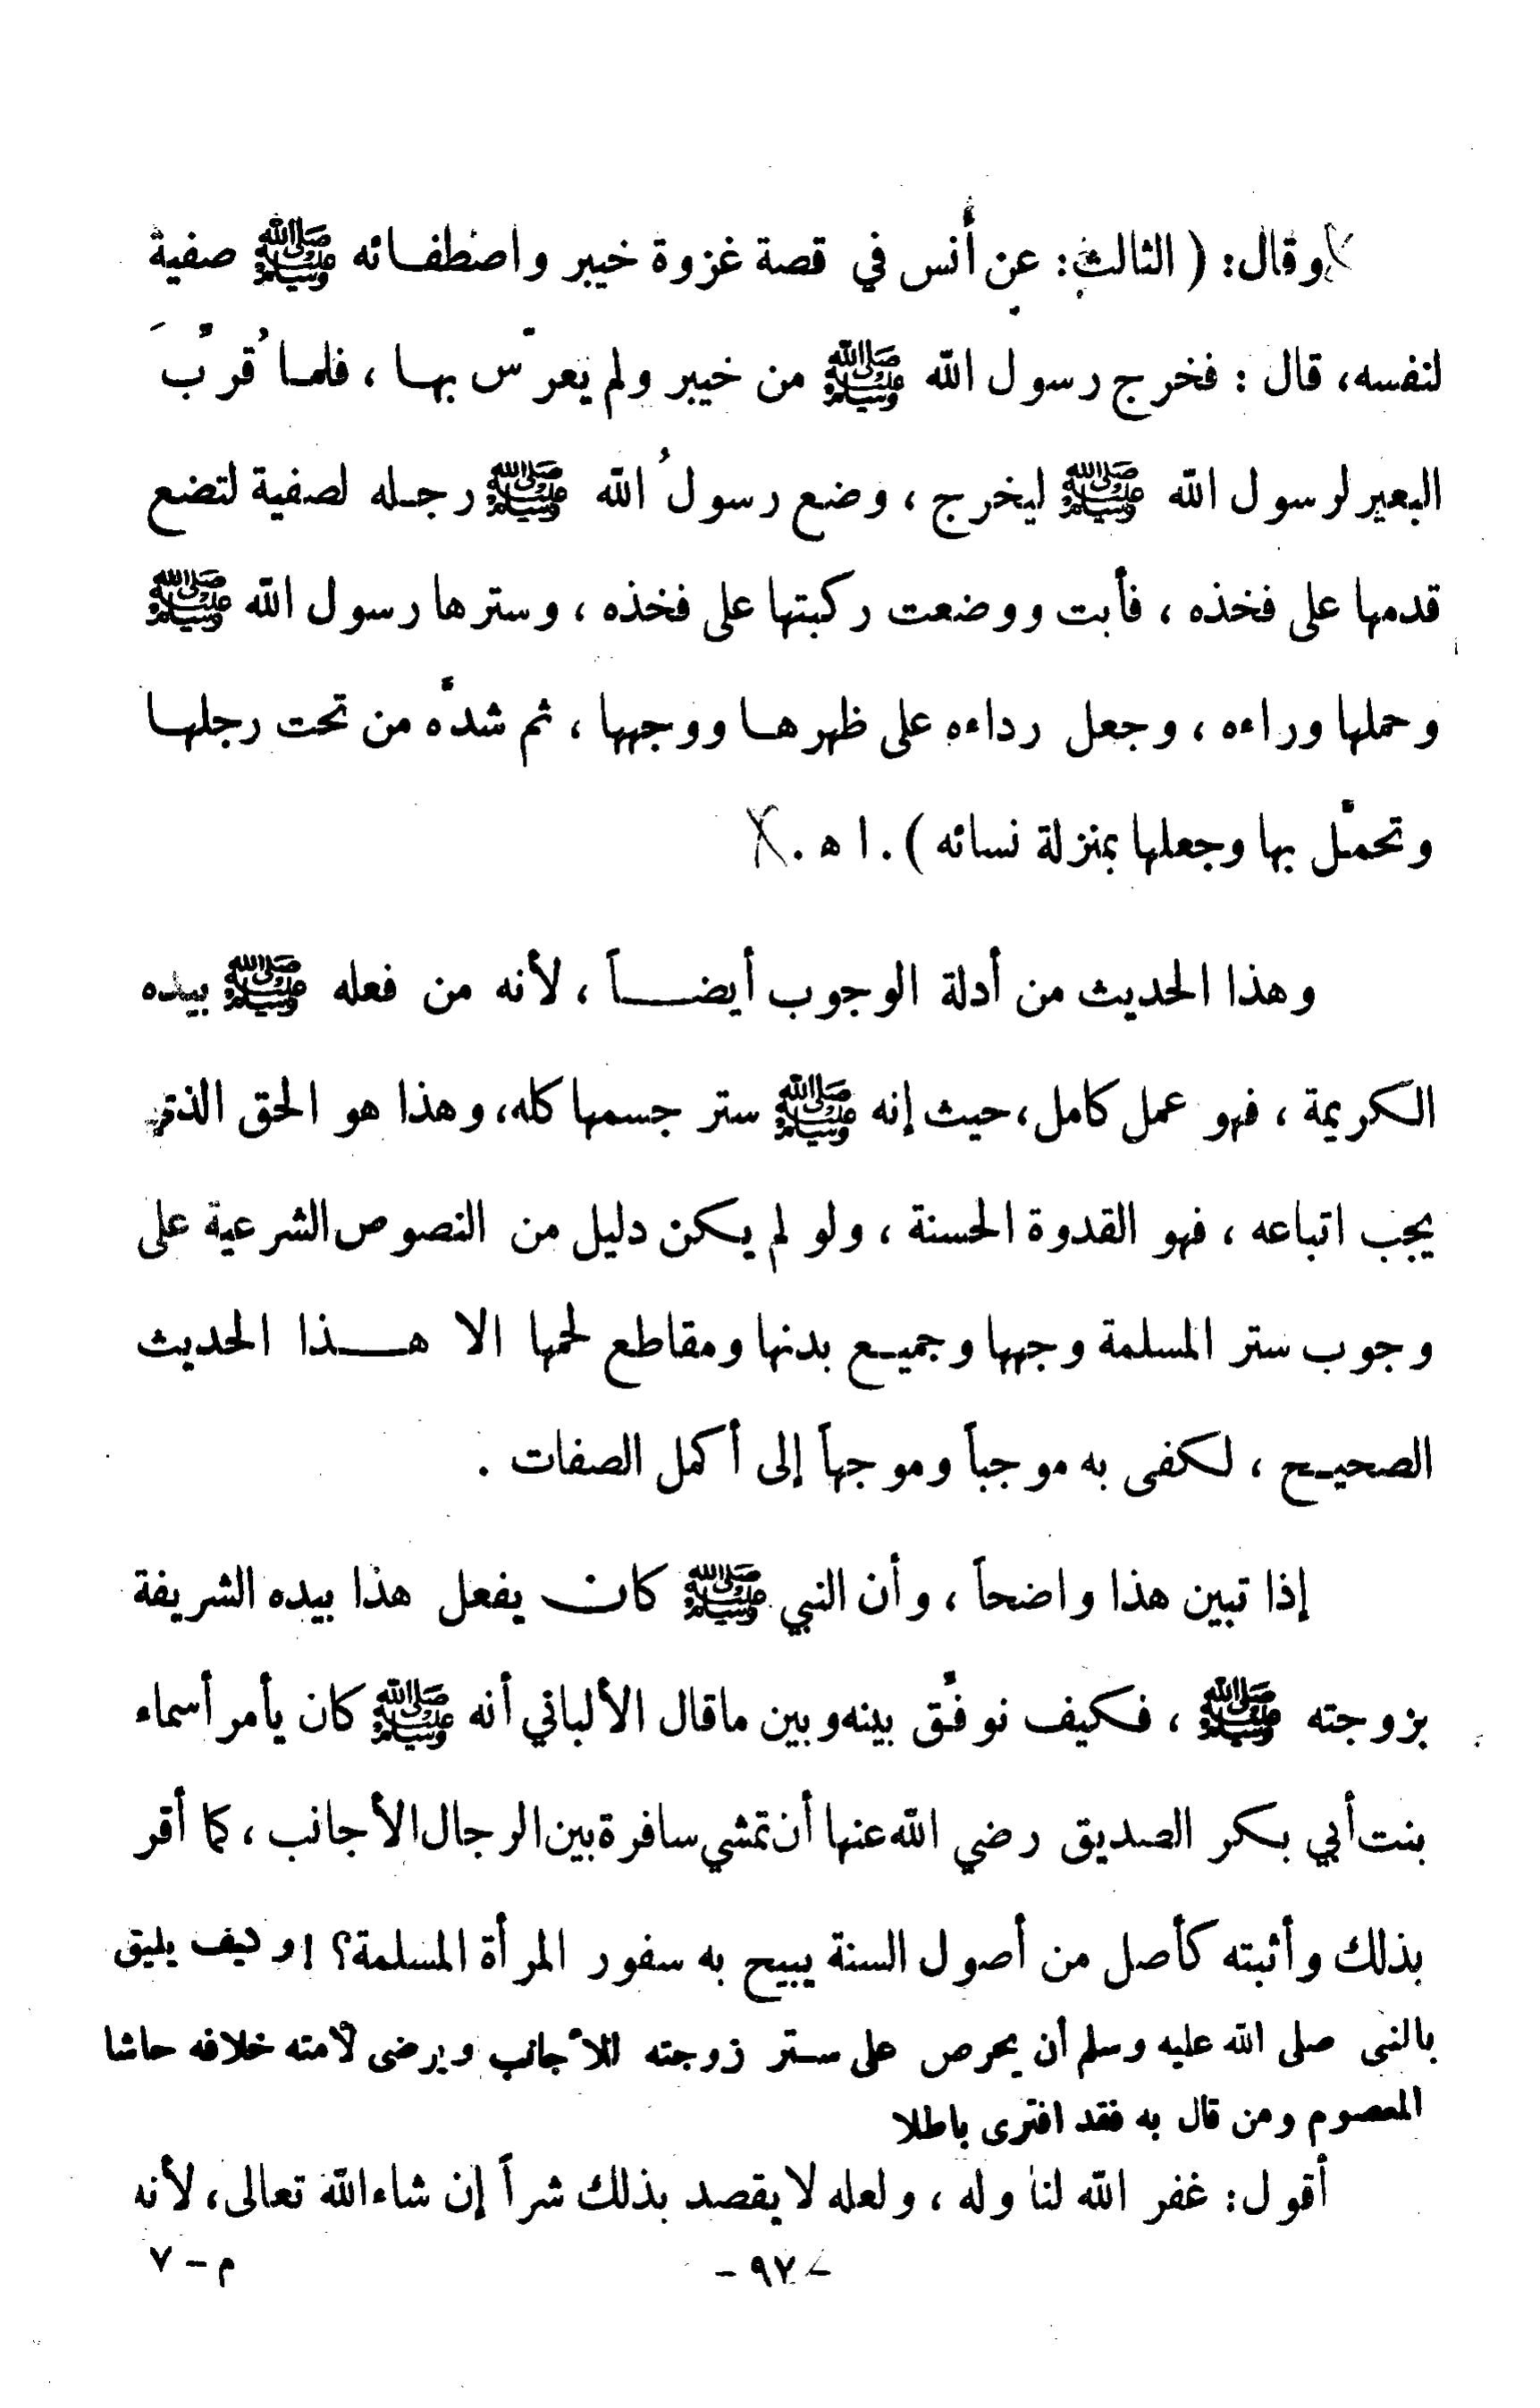 وقال: ( الثالث: عن أنس في قصة غزوة خيبر واصطفـائه ﷺ صفية
لنفسه، قال : فخرج رسول الله ﷺ من خيبر ولم يعرّس بهـا ، فلمـا قُرّبَ
البعير لرسول الله ﷺ ليخرج ، وضع رسولُ الله ﷺ رجـله لصفية لتضع
قدمها على فخذه ، فأبت ووضعت ركبتها على فخذه ، وسترها رسول الله ﷺ
وحملها وراءه ، وجعل رداءه على ظهرهـا ووجهها ، ثم شدّه من تحت رجلهـا
وتحمّل بها وجعلها بمنزلة نسائه ) . ا ه .
وهذا الحديث من أدلة الوجوب أيضـــاً ، لأنه من فعله ﷺ بيده
الكريمة ، فهو عمل كامل ، حيث إنه ﷺ ستر جسمها كله، وهذا هو الحق الذي
يجب اتباعه ، فهو القدوة الحسنة ، ولو لم يكن دليل من النصوص الشرعية على
وجوب ستر المسلمة وجهها وجميـع بدنها ومقاطع لحمها الا هـــذا الحديث
الصحيـح ، لكفى به موجباً وموجهاً إلى أكمل الصفات .
إذا تبين هذا واضحاً ، وأن النبي ﷺ كان يفعل هذا بيده الشريفة
بزوجته ﷺ ، فكيف نوفّق بينه وبين ماقال الألباني أنه ﷺ كان يأمر أسماء
بنت أبي بكر الصديق رضي الله عنها أن تمشي سافرة بين الرجال الأجانب ، كما أقر
بذلك وأثبته كأصل من أصول السنة يبيح به سفور المرأة المسلمة؟ ! وكيف يليق
بالنبى صلى الله عليه وسلم أن يحرص على ستر زوجته للأجانب ويرضى لأمته خلافه حاشا
المعصوم ومن قال به فقد افترى باطلا
أقول: غفر الله لنا وله ، ولعله لا يقصد بذلك شراً إن شاءالله تعالى، لأنه
- ٩٧ -
م - ٧